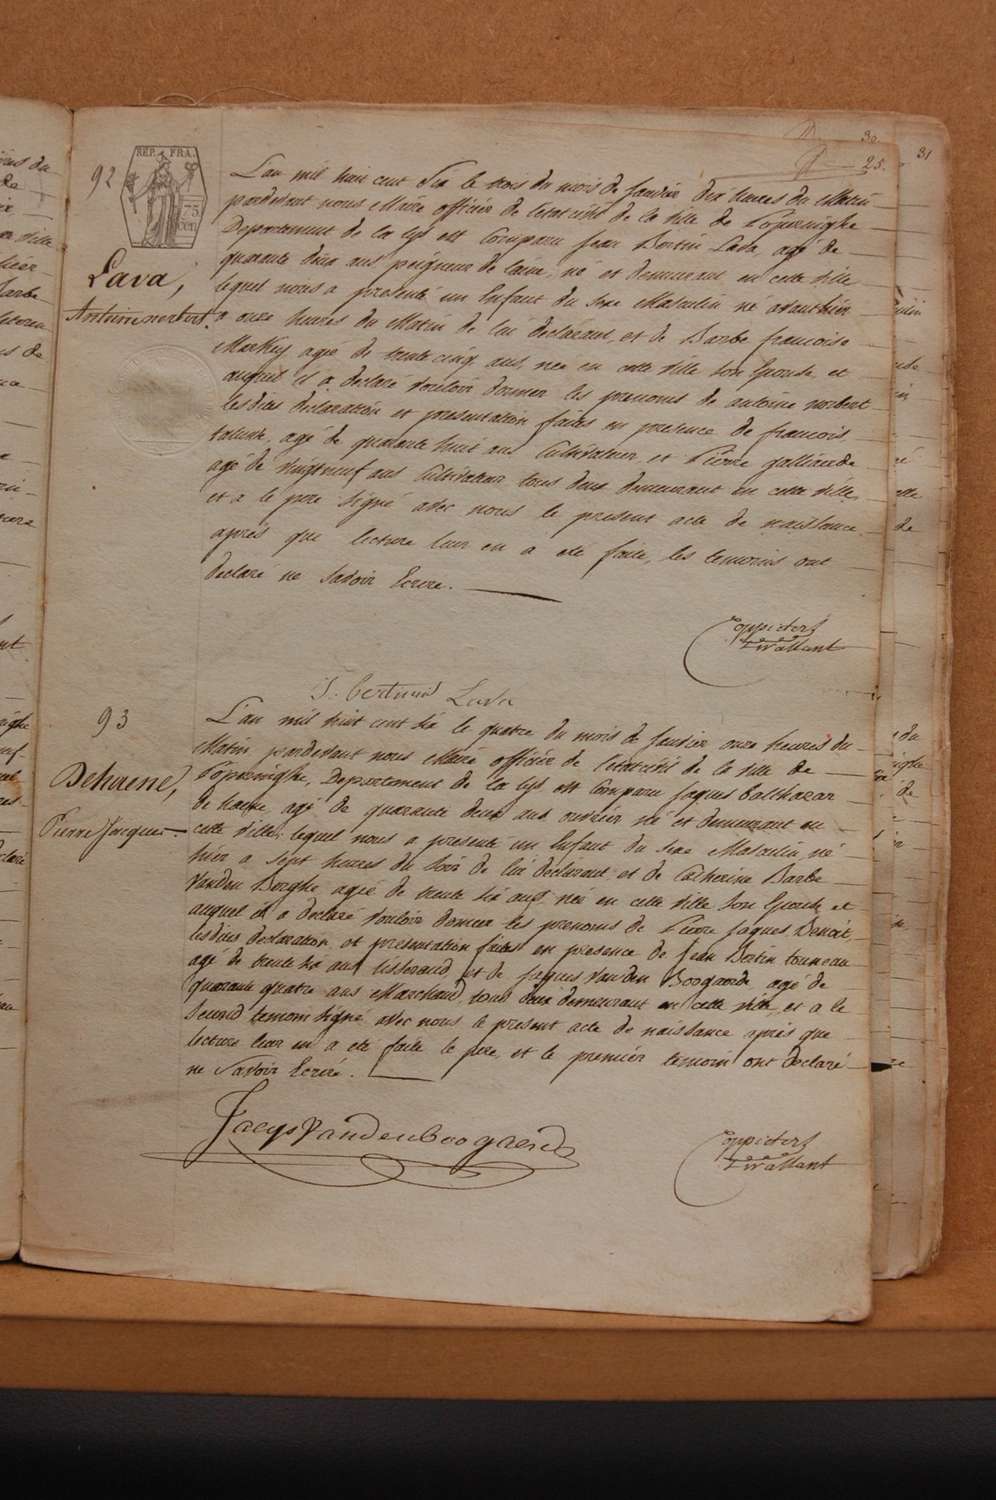 30
25.
31
92
REP. FRA.
75
CEN.
Lava,
Antoine norbert.
L'an mil huit cent Six le trois du mois de Janvier dix heures du Matin
pardevant nous Maire officier de l'etat civil de la ville de Poperinghe
Departement de la Lys est Comparu Jean Bertin Lava, agé de
quarante deux ans peigneur de laine, né et demeurant en cette ville
lequel nous a presenté un Enfant du Sexe Masculin né avanthier
a onze heures du Matin de lui declarant, et de Barbe francoise
agée de trente cinq ans, née en cette ville Son Epouse et
auquel il a declaré vouloir donner les prenoms de antoine norbert
lesdites declaration et presentation faites en presence de francois
agé de quarante huit ans Cultivateur et Pierre
agé de Vingt neuf ans Cultivateur tous deux demeurant en cette ville
et a le pere Signé avec nous le present acte de naissance
après que lecture leur en a eté faite, les temoins ont
declaré ne Savoir Ecrire.
J. bertinus Lava
93
Dehaene,
Pierre Jacques
L'an mil huit cent Six le quatre du mois de Janvier onze heures du
Matin pardevant nous Maire officier de l'etat civil de la ville de
Poperinghe, Departement de la Lys est Comparu Jaques balthazar
de haene agé de quarante deux ans ouvrier né et demeurant en
cette ville, lequel nous a presenté un Enfant du Sexe Masculin né
hier a Sept heures du Soir de lui declarant et de Catherine Barbe
Vanden Berghe agée de trente Six ans, née en cette ville Son Epouse et
auquel il a declaré vouloir donner les prenoms de Pierre Jaques Benoit
lesdites declaration et presentation faites en presence de Jean Bertin tonneau
agé de trente Six ans tisserand et de Jaques Vanden Boogaerde agé de
quarante quatre ans Marchand, tous deux demeurant en cette ville, et a le
Second temoin Signé avec nous le present acte de naissance après que
lecture leur en a eté faite le pere et le premier temoin ont declaré
ne Savoir Ecrire.
Jacqs Vandenboogaerde